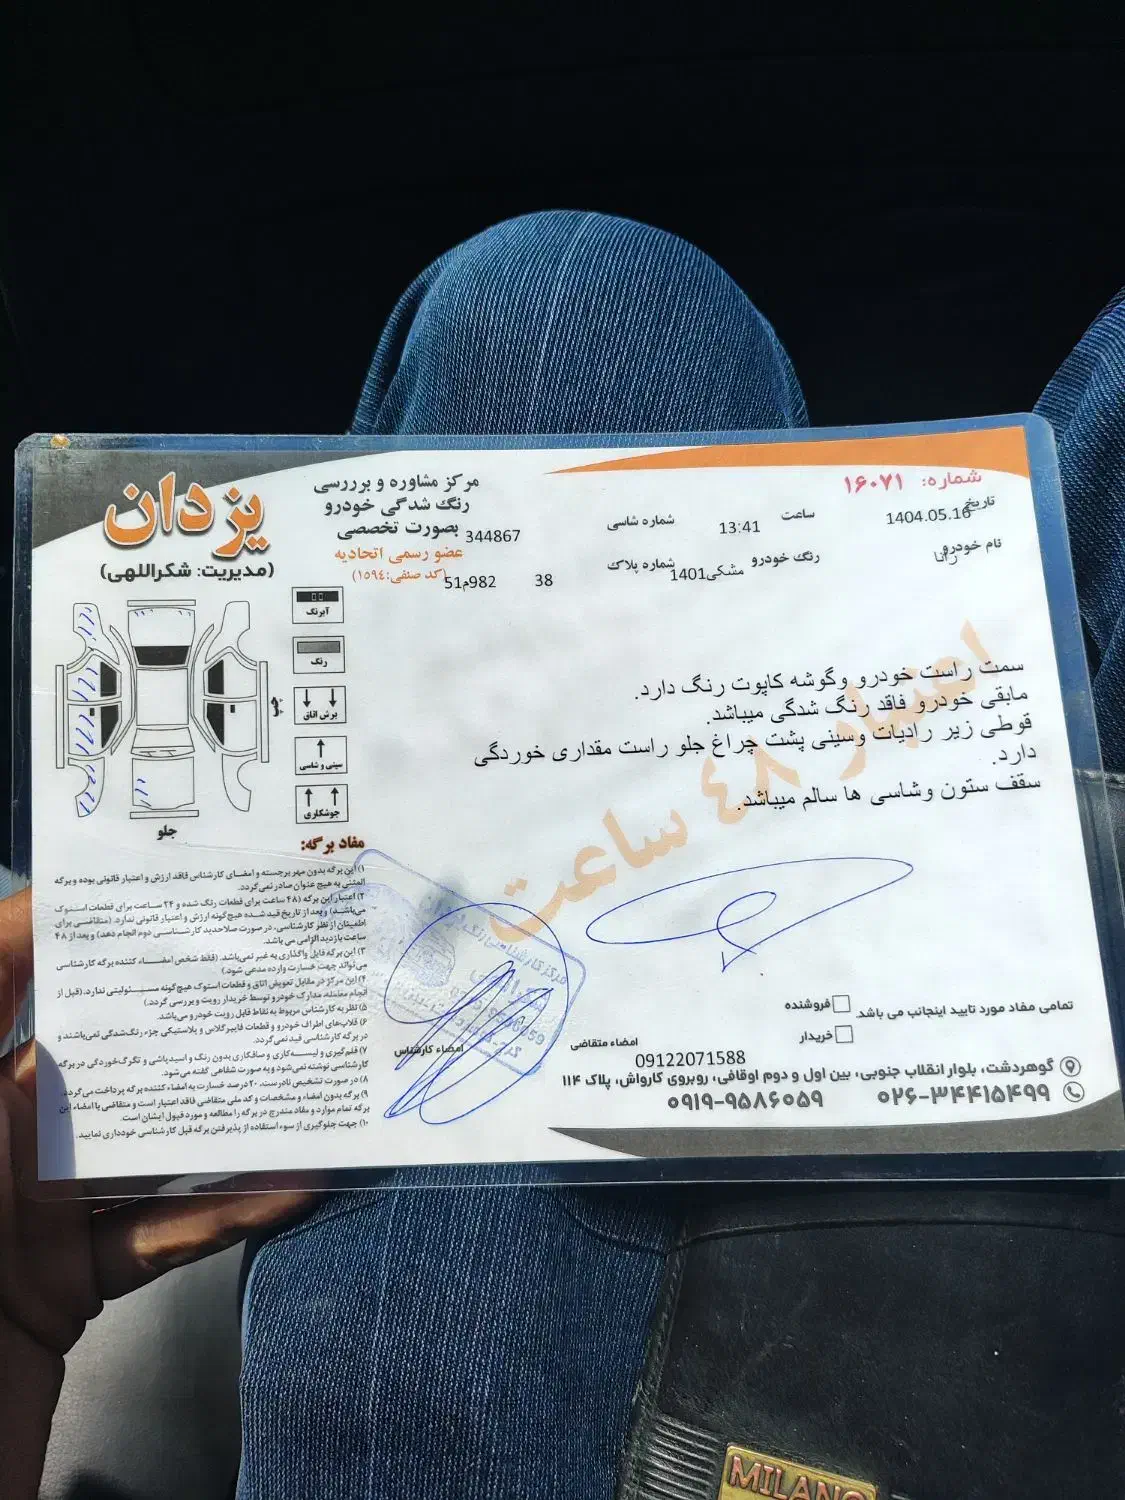 شماره: ۱۶۰۷۱
تاریخ 1404.05.16
ساعت 13:41
شماره شاسی 344867
نام خودرو رانا
رنگ خودرو مشکی1401
شماره پلاک 38 982م51
یزدان
(مدیریت: شکراللهی)
مرکز مشاوره و برررسی
رنگ شدگی خودرو
بصورت تخصصی
عضو رسمی اتحادیه
(کد صنفی: ۱۵۹۴)
آبرنگ
رنگ
برش اتاق
سینی و شاسی
جوشکاری
چپ
جلو
سمت راست خودرو وگوشه کاپوت رنگ دارد.
مابقی خودرو فاقد رنگ شدگی میباشد.
قوطی زیر رادیات وسینی پشت چراغ جلو راست مقداری خوردگی
دارد.
سقف ستون وشاسی ها سالم میباشد.
اعتبار ۴۸ ساعت
مفاد برگه:
۱) این برگه بدون مهر برجسته و امضای کارشناس فاقد ارزش و اعتبار قانونی بوده و برگه
المثنی به هیچ عنوان صادر نمی‌گردد.
۲) اعتبار این برگه (۴۸ ساعت برای قطعات رنگ شده و ۲۴ ساعت برای قطعات استوک
می‌باشد) و بعد از تاریخ قید شده هیچ گونه ارزش و اعتبار قانونی ندارد. (متقاضی برای
اطمینان از نظر کارشناسی، در صورت صلاحدید کارشناسی دوم انجام دهد) و بعد از ۴۸
ساعت بازدید الزامی می باشد.
۳) این برگه قابل واگذاری به غیر نمی‌باشد. (فقط شخص امضاء کننده برگه کارشناسی
می‌تواند جهت خسارت وارده مدعی شود.)
۴) این مرکز در مقابل تعویض اتاق و قطعات استوک هیچ گونه مسئولیتی ندارد. (قبل از
انجام معامله، مدارک خودرو توسط خریدار رویت و بررسی گردد.)
۵) نظریه کارشناس مربوط به نقاط قابل رویت خودرو می‌باشد.
۶) قلاب‌های اطراف خودرو و قطعات فایبرگلاس و پلاستیکی جزء رنگ‌شدگی نمی‌باشند و
در برگه کارشناسی قید نمی‌گردد.
۷) قلم‌گیری و لیسه‌کاری و صافکاری بدون رنگ و اسیدپاشی و تگرگ‌خوردگی در برگه
کارشناسی نوشته نمی‌شود و به صورت شفاهی گفته می‌شود.
۸) در صورت تشخیص نادرست، ۲۰ درصد خسارت به امضاء کننده برگه پرداخت می‌گردد.
۹) برگه بدون امضاء و مشخصات و کد ملی متقاضی فاقد اعتبار است و متقاضی با امضاء این
برگه تمام موارد و مفاد مندرج در برگه را مطالعه و مورد قبول ایشان است.
۱۰) جهت جلوگیری از سوء استفاده از پذیرفتن برگه قبل کارشناسی خودداری نمایید.
امضاء کارشناس
امضاء متقاضی
تمامی مفاد مورد تایید اینجانب می باشد.
فروشنده
خریدار
09122071588
گوهردشت، بلوار انقلاب جنوبی، بین اول و دوم اوقافی، روبروی کارواش، پلاک ۱۱۴
۰۲۶-۳۴۴۱۵۴۹۹
۰۹۱۹-۹۵۸۶۰۵۹
MILANO